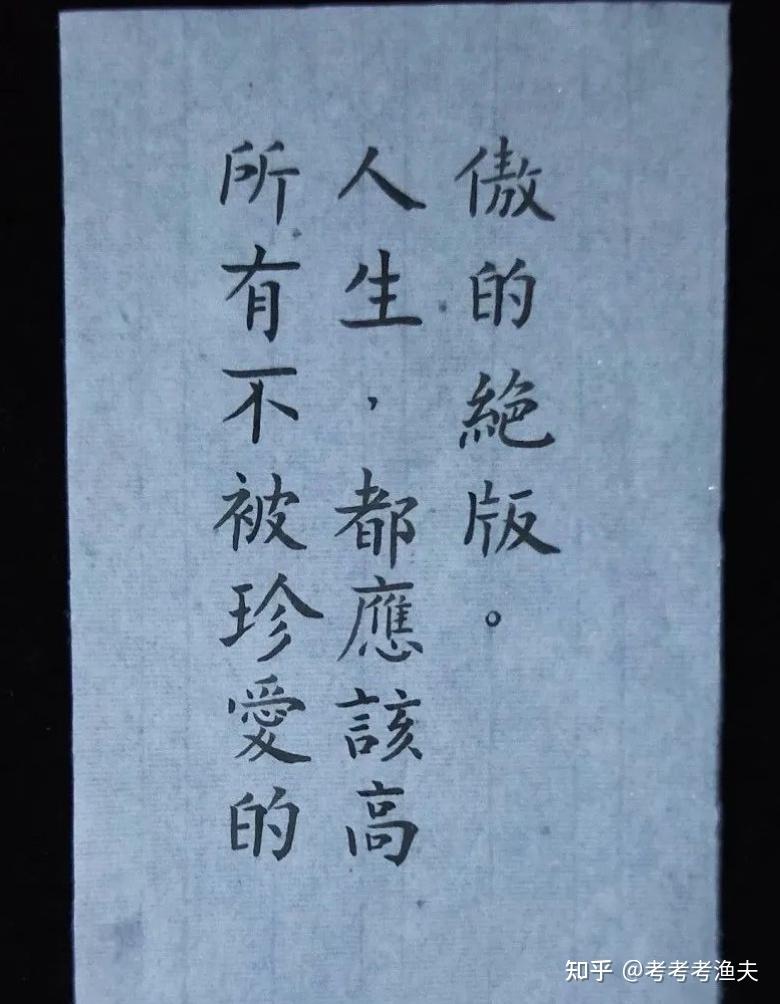 所有不被珍愛的
人生，都應該高
傲的絕版。
知乎 @考考考渔夫